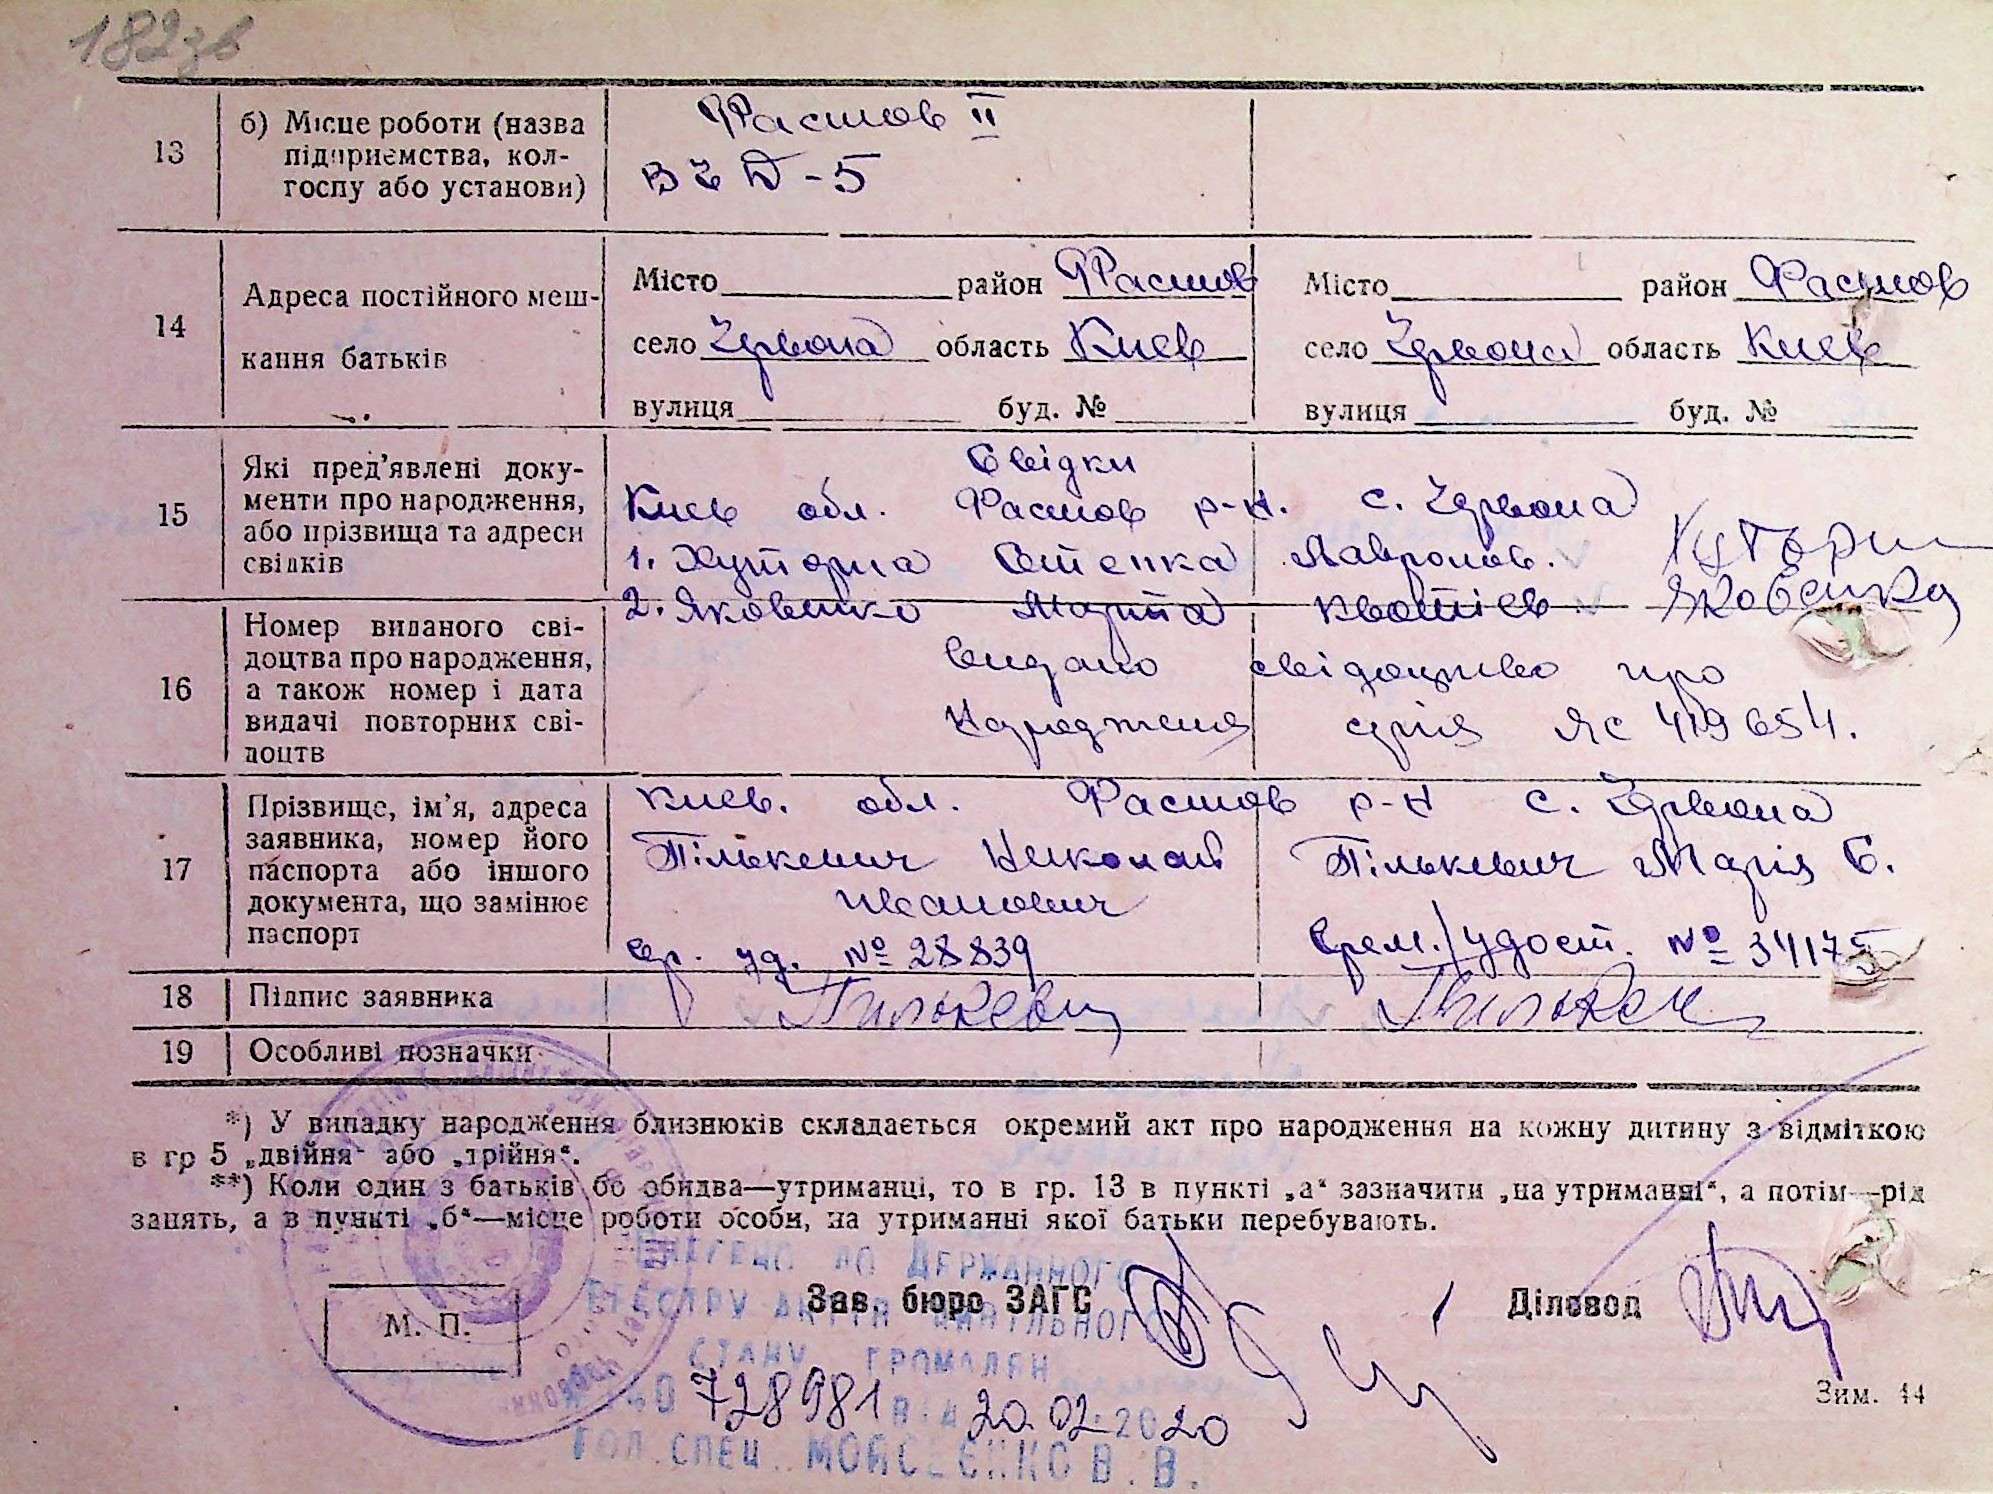 182зв
13 б) Місце роботи (назва підприємства, колгоспу або установи)
Фастов II
ВЧД-5
14 Адреса постійного мешкання батьків
Місто район Фастов Місто район Фастов
село Червона область Киев село Червона область Киев
вулиця буд. № вулиця буд. №
15 Які пред'явлені документи про народження, або прізвища та адреси свідків
Свідки
Киев обл. Фастов р-н. с. Червона
1. Хуторна Степка Лавронов. Хуторн
2. Яковенко Марта Квотієв Яковенко
16 Номер виданого свідоцтва про народження, а також номер і дата видачі повторних свідоцтв
видано свідоцтво про
народження серія ЯС 419654.
17 Прізвище, ім'я, адреса заявника, номер його паспорта або іншого документа, що замінює паспорт
Киев. обл. Фастов р-н с. Червона
Пількевич Николай Пількевич Марія С.
Иванович
вр. уд. № 28839 Врем. удост. № 34175
18 Підпис заявника Пилькевич Пилькеч
19 Особливі позначки
*) У випадку народження близнюків складається окремий акт про народження на кожну дитину з відміткою
в гр 5 „двійня“ або „трійня“.
**) Коли один з батьків бо обидва—утриманці, то в гр. 13 в пункті „а“ зазначити „на утриманні“, а потім—рід
занять, а в пункті „б“—місце роботи особи, на утриманні якої батьки перебувають.
ВНЕСЕНО ДО ДЕРЖАВНОГО
Зав. бюро ЗАГС Діловод
РЕЄСТРУ АКТІВ ЦИВІЛЬНОГО
М. П.
СТАНУ ГРОМАДЯН
728981 ВІД 20.02.2020
Зим. 44
ГОЛ.СПЕЦ. МОЙСЕЄНКО В.В.